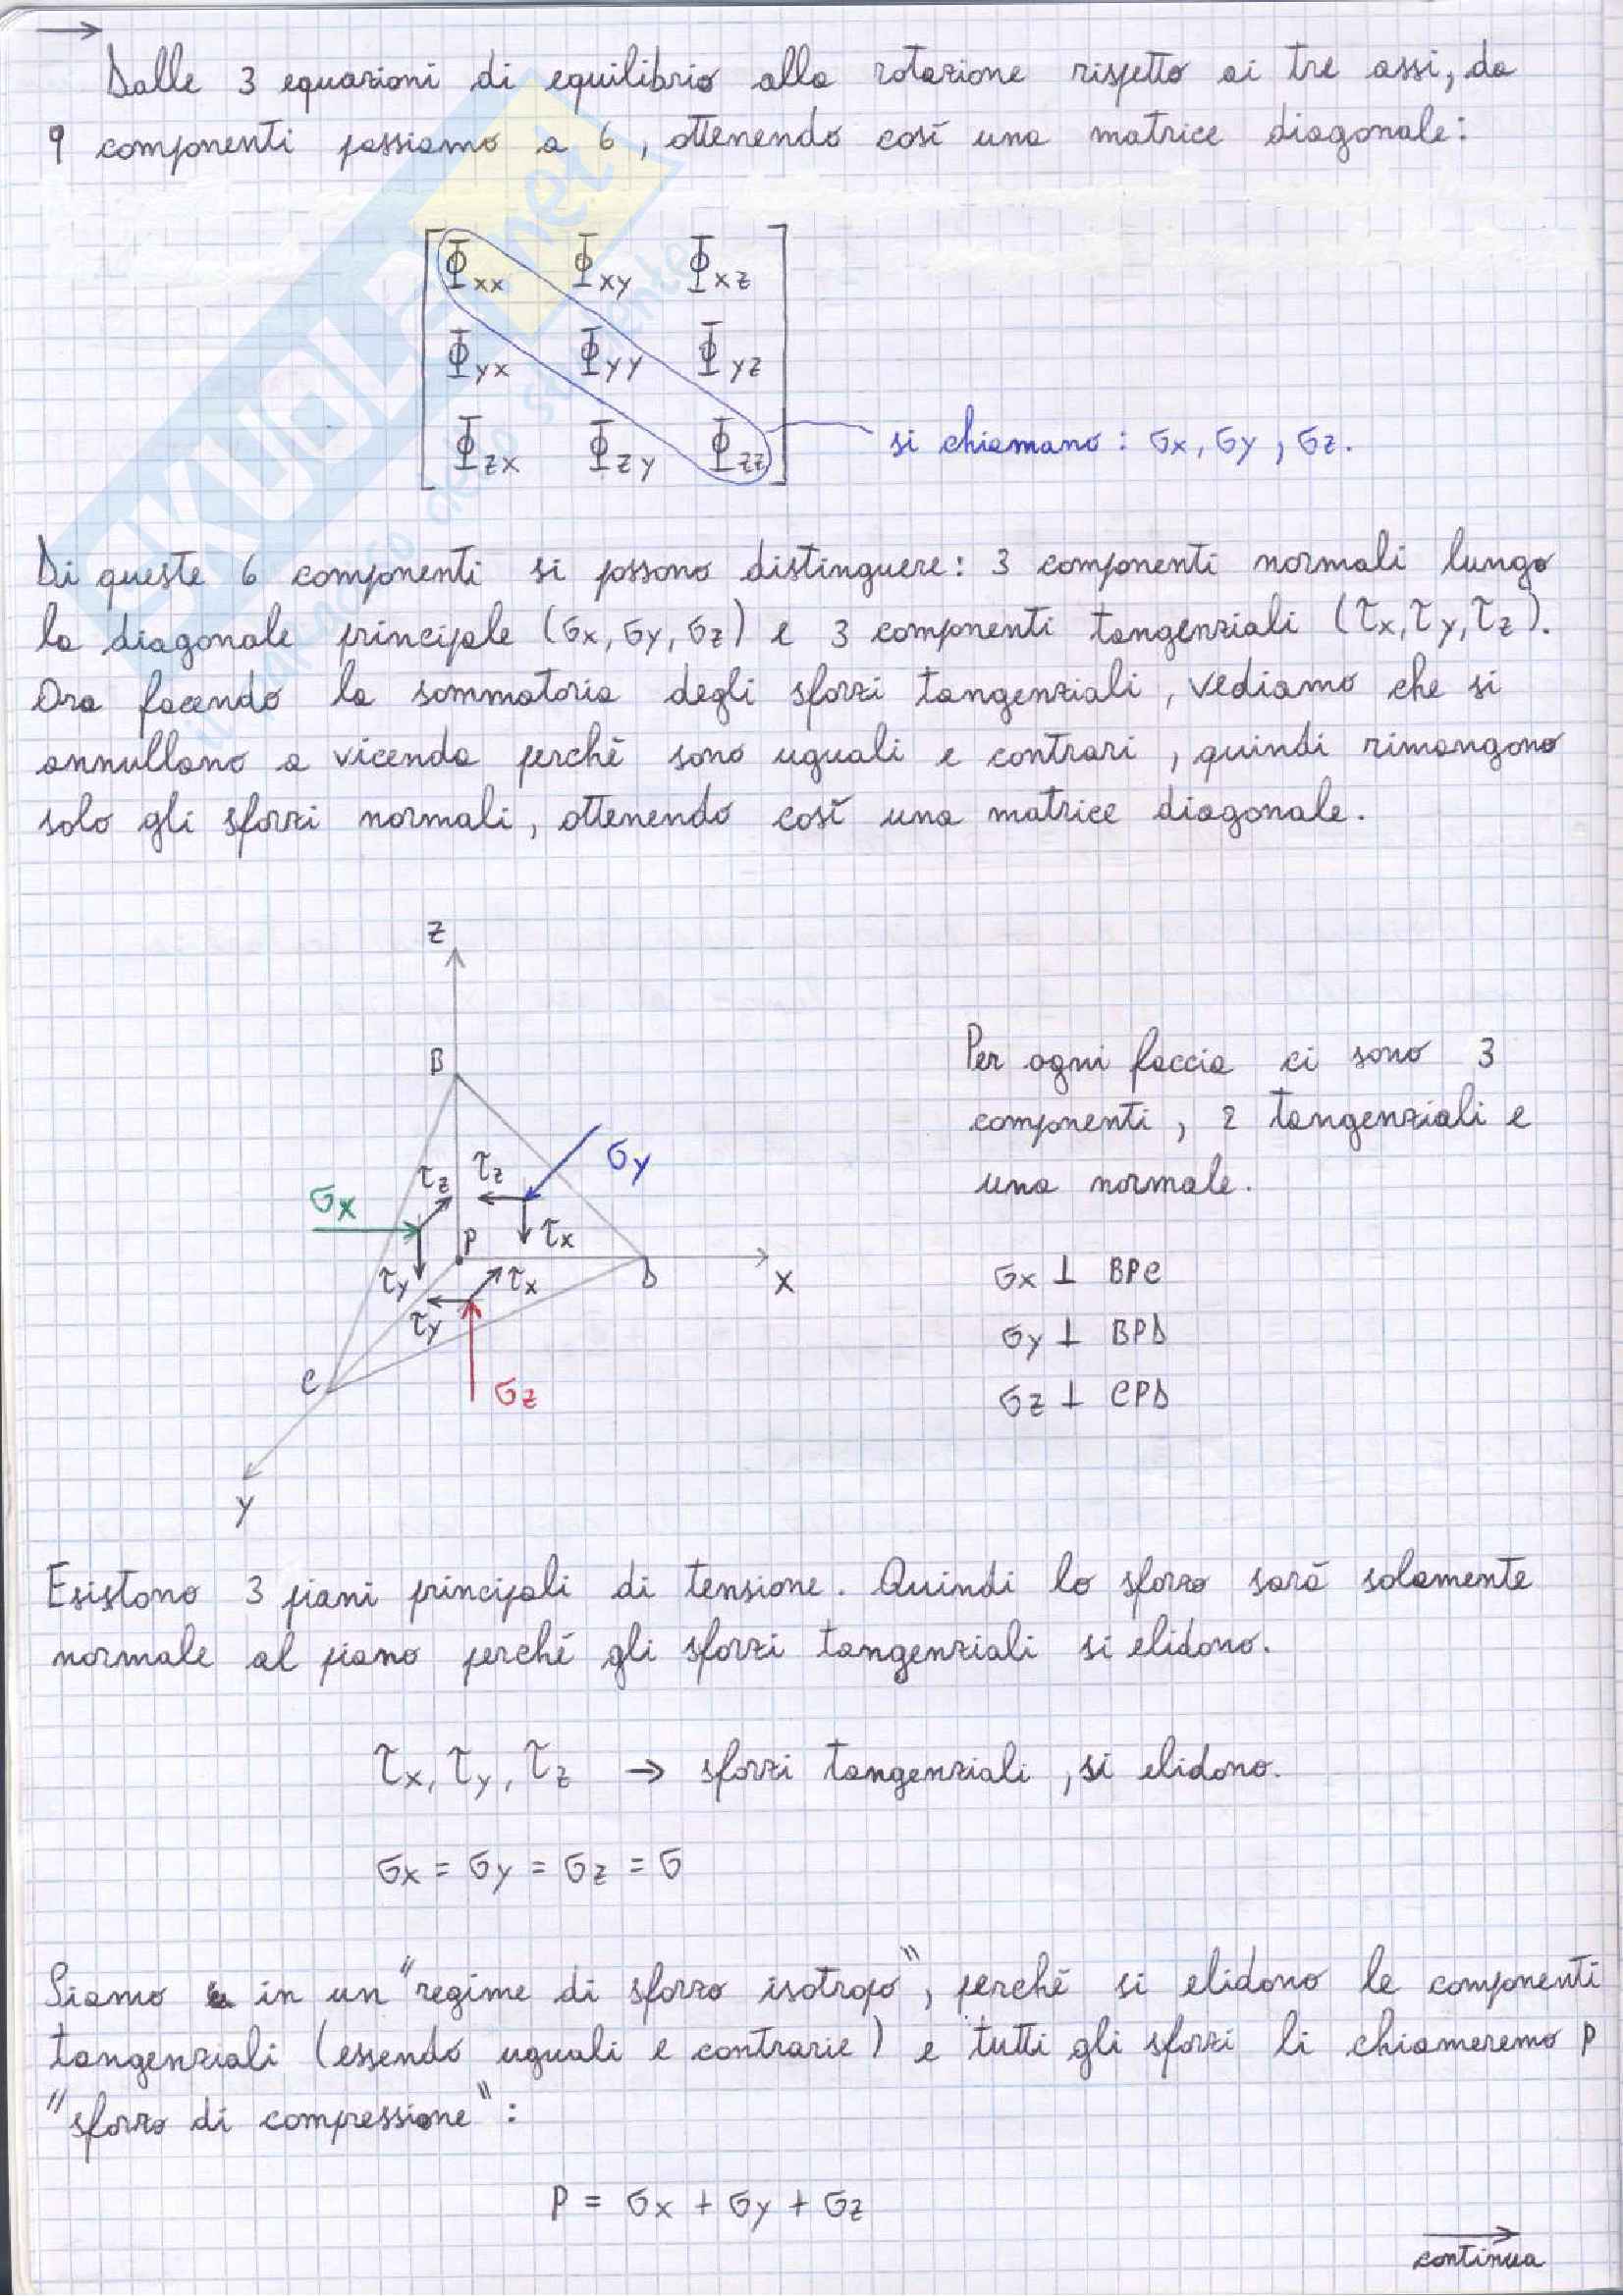 →
Dalle 3 equazioni di equilibrio alla rotazione rispetto ai tre assi, da
9 componenti passiamo a 6, ottenendo così una matrice diagonale:
Φxx Φxy Φxz
Φyx Φyy Φyz
Φzx Φzy Φzz
si chiamano: σx, σy, σz.
Di queste 6 componenti si possono distinguere: 3 componenti normali lungo
la diagonale principale (σx, σy, σz) e 3 componenti tangenziali (τx, τy, τz).
Ora facendo la sommatoria degli sforzi tangenziali, vediamo che si
annullano a vicenda perchè sono uguali e contrari, quindi rimangono
solo gli sforzi normali, ottenendo così una matrice diagonale.
z
B
σy
τz τz
σx
τx
P
τy
τx
D
x
τy
C
σz
y
Per ogni faccia ci sono 3
componenti, 2 tangenziali e
una normale.
σx ⊥ BPC
σy ⊥ BPD
σz ⊥ CPD
Esistono 3 piani principali di tensione. Quindi lo sforzo sarà solamente
normale al piano perchè gli sforzi tangenziali si elidono.
τx, τy, τz → sforzi tangenziali, si elidono.
σx = σy = σz = σ
Siamo in un "regime di sforzo isotropo", perchè si elidono le componenti
tangenziali (essendo uguali e contrarie) e tutti gli sforzi li chiameremo p
"sforzo di compressione":
p = σx + σy + σz
continua
SKUOLA.net